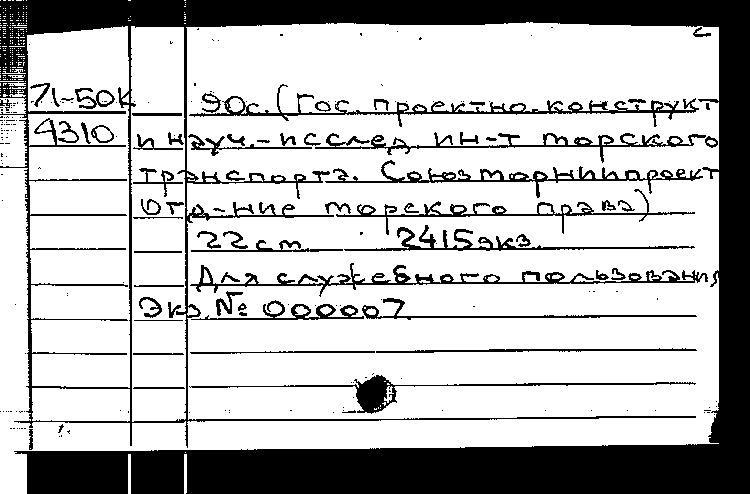 2
71-50К 90с. (Гос. проектно-конструкт
4310 и науч.-исслед. ин-т морского
транспорта. Союзморниипроект
Отд-ние морского права)
22см 2415экз.
Для служебного пользования
Экз. № 000007.